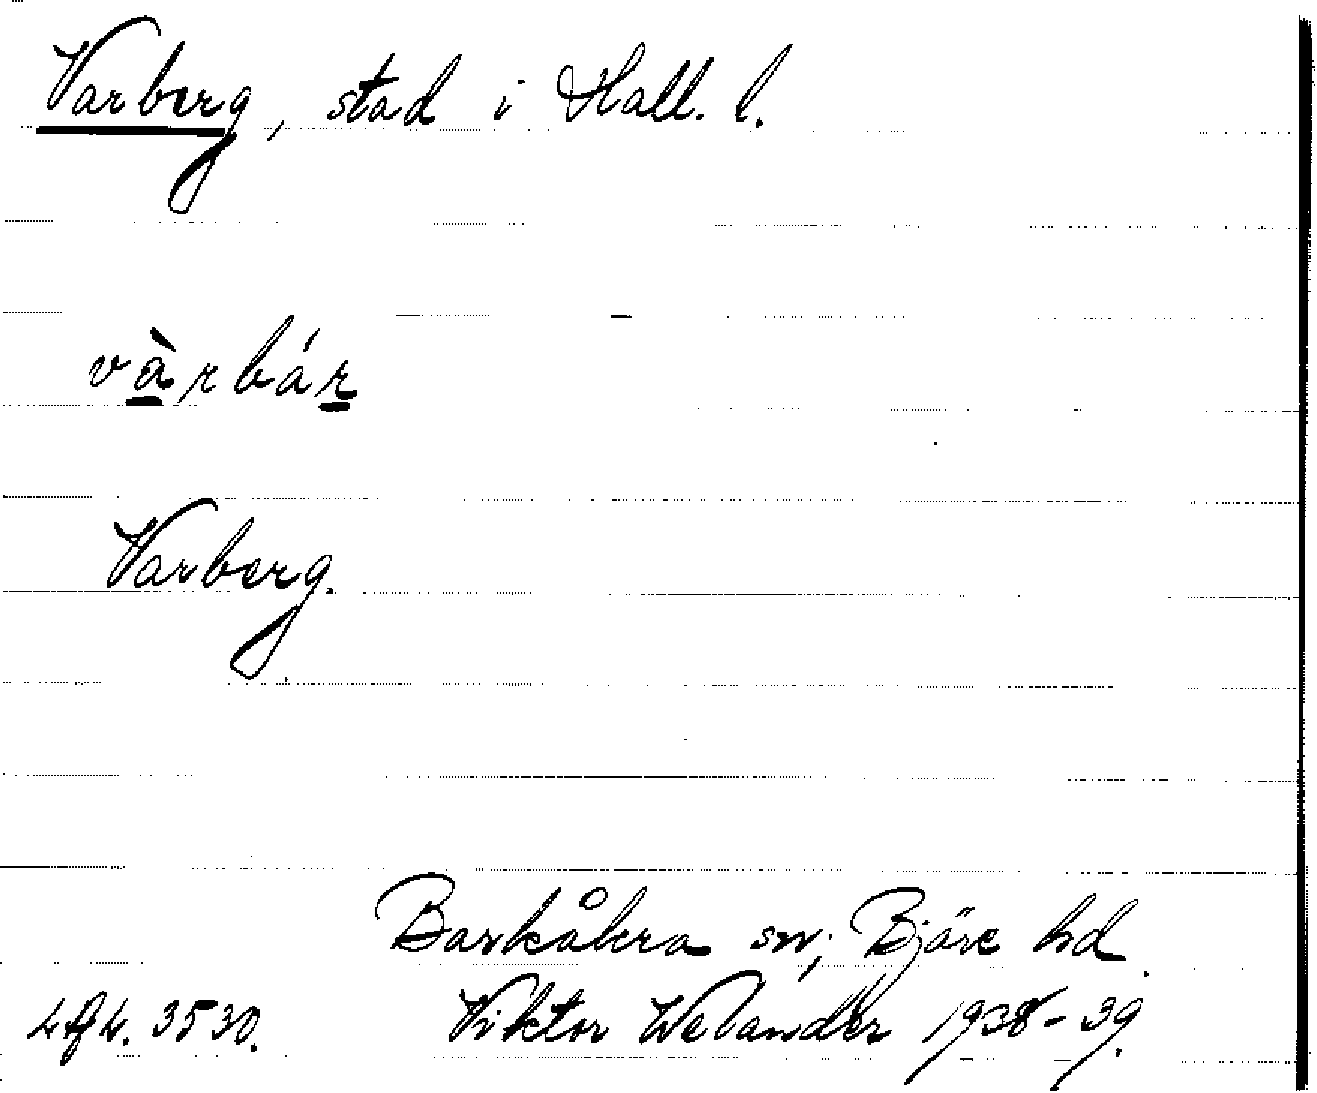 Varberg, stad i Hall. l.
vàrbár
Varberg.
Barkåkra sn; Bjäre hd.
3530. Viktor Welander 1938-39.